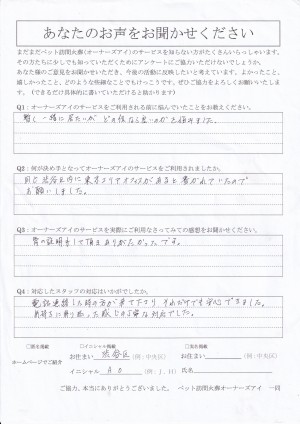 あなたのお声をお聞かせください
まだまだペット訪問火葬(オーナーズアイ)のサービスを知らない方がたくさんいらっしゃいます。
その方たちに少しでも知っていただくためにアンケートにご協力いただけないでしょうか。
あなた様のご意見をお聞かせいただき、今後の活動に反映したいと考えています。よかったこと、
嬉しかったこと、どのような些細なことでもけっこうです。ぜひご協力をよろしくお願いいたします。
(できるだけ具体的に書いていただけると助かります)
Q1:オーナーズアイのサービスをご利用される前に悩んでいたことをお教えください。
暫く一緒に居たいがどの位なら良いのかと悩みました。
Q2:何が決め手となってオーナーズアイのサービスをご利用されましたか。
渋谷区内に東京エリアオフィスがあると書かれていたので
お願いしました。
Q3:オーナーズアイのサービスを実際にご利用なさってみての感想をお聞かせください。
骨の説明をして頂きありがたかったです。
Q4:対応したスタッフの対応はいかがでしたか。
電話連絡した時の方が来て下さり、それだけでも安心できました。
気持ちに寄り添った感じの丁寧な対応でした。
□匿名掲載 □イニシャル掲載 □実名掲載
ホームページでご紹介
お住まい 渋谷区 (例:中央区) お住まい (例:中央区)
イニシャル A O (例:J. H) 氏名
ご協力、本当にありがとうございました。 ペット訪問火葬オーナーズアイ 一同